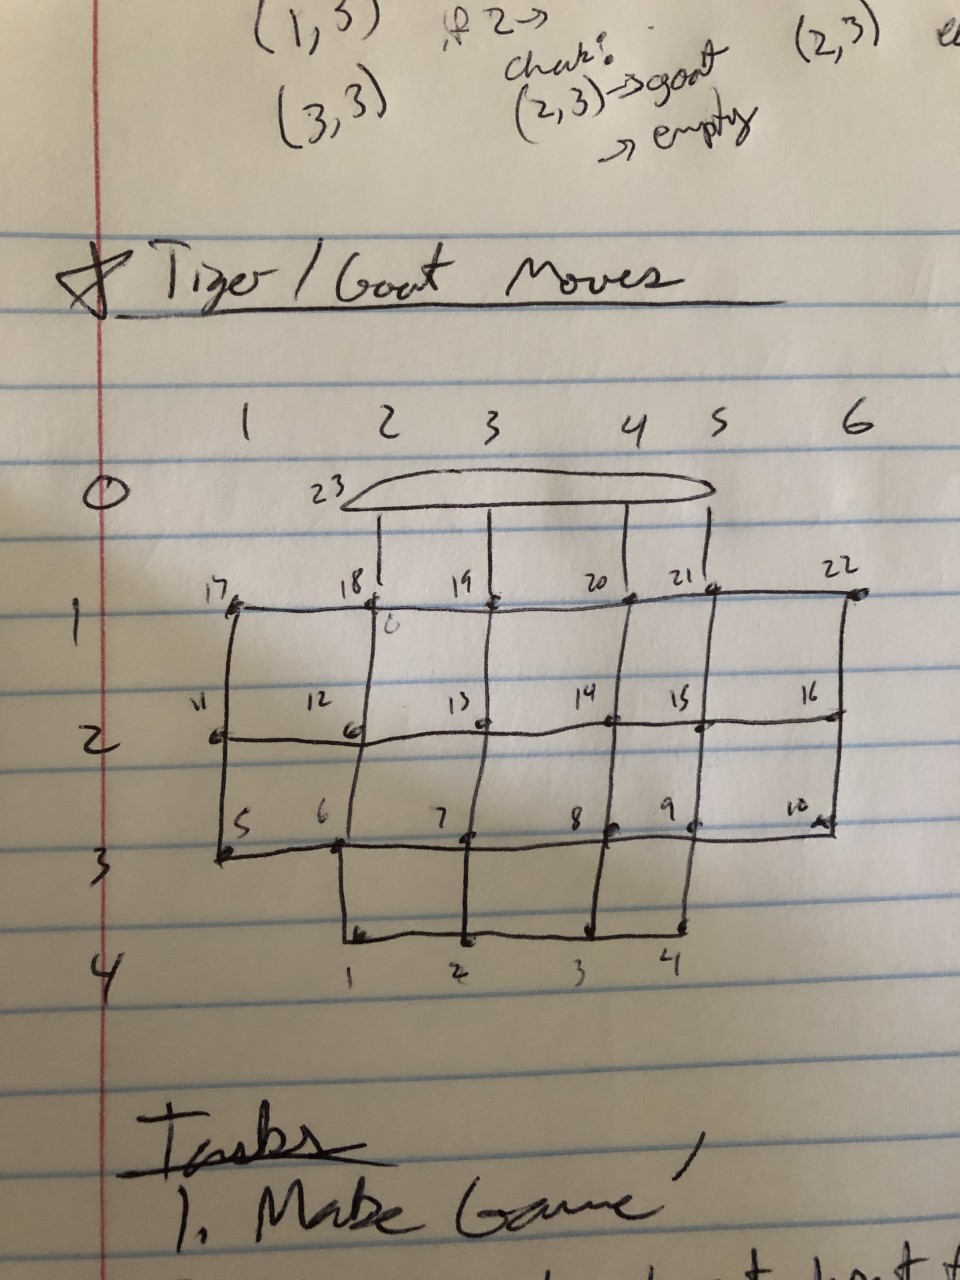 (1,3) if 2→ (2,3)
check:
(3,3) (2,3)→goat
→ empty
Tiger/Goat Moves
1 2 3 4 5 6
0 23
17 18 19 20 21 22
1
11 12 13 14 15 16
2
5 6 7 8 9 10
3
4 1 2 3 4
Tasks
1. Make Game